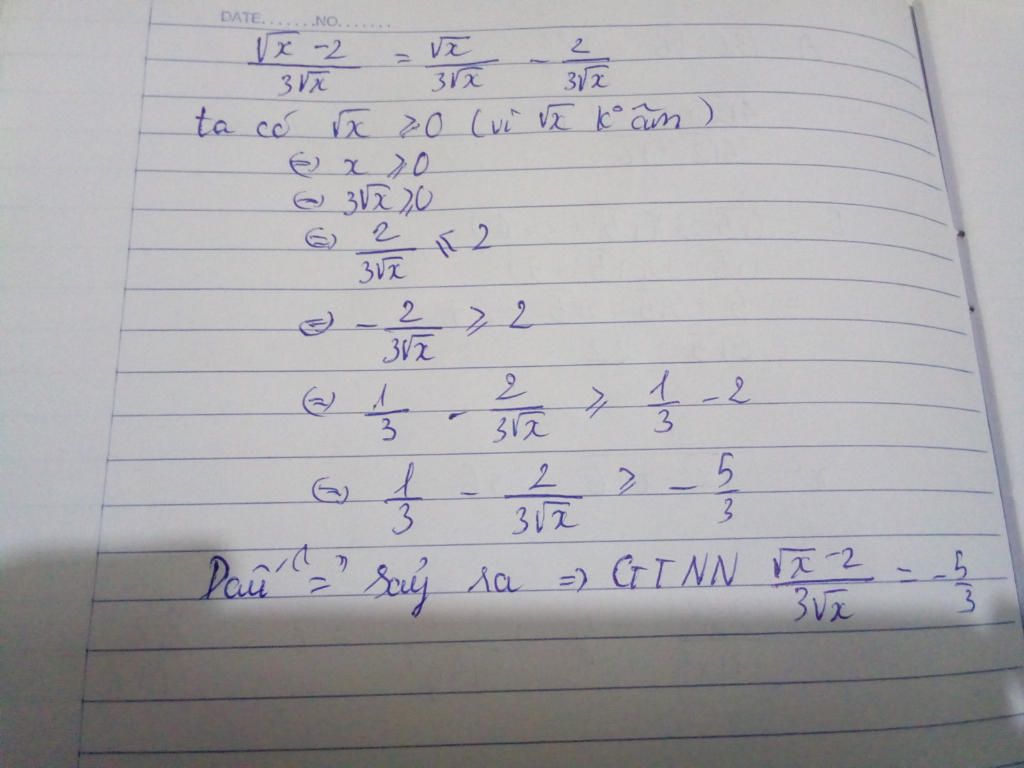 DATE.......NO.......
\frac{\sqrt{x} - 2}{3\sqrt{x}} = \frac{\sqrt{x}}{3\sqrt{x}} - \frac{2}{3\sqrt{x}}
ta có √x ⩾ 0 (vì √x k° âm)
⇔ x ⩾ 0
⇔ 3√x ⩾ 0
⇔ \frac{2}{3\sqrt{x}} ⩽ 2
⇔ - \frac{2}{3\sqrt{x}} ⩾ 2
⇔ \frac{1}{3} - \frac{2}{3\sqrt{x}} ⩾ \frac{1}{3} - 2
⇔ \frac{1}{3} - \frac{2}{3\sqrt{x}} ⩾ - \frac{5}{3}
Dấu "=" xảy ra => GTNN \frac{\sqrt{x} - 2}{3\sqrt{x}} = -\frac{5}{3}